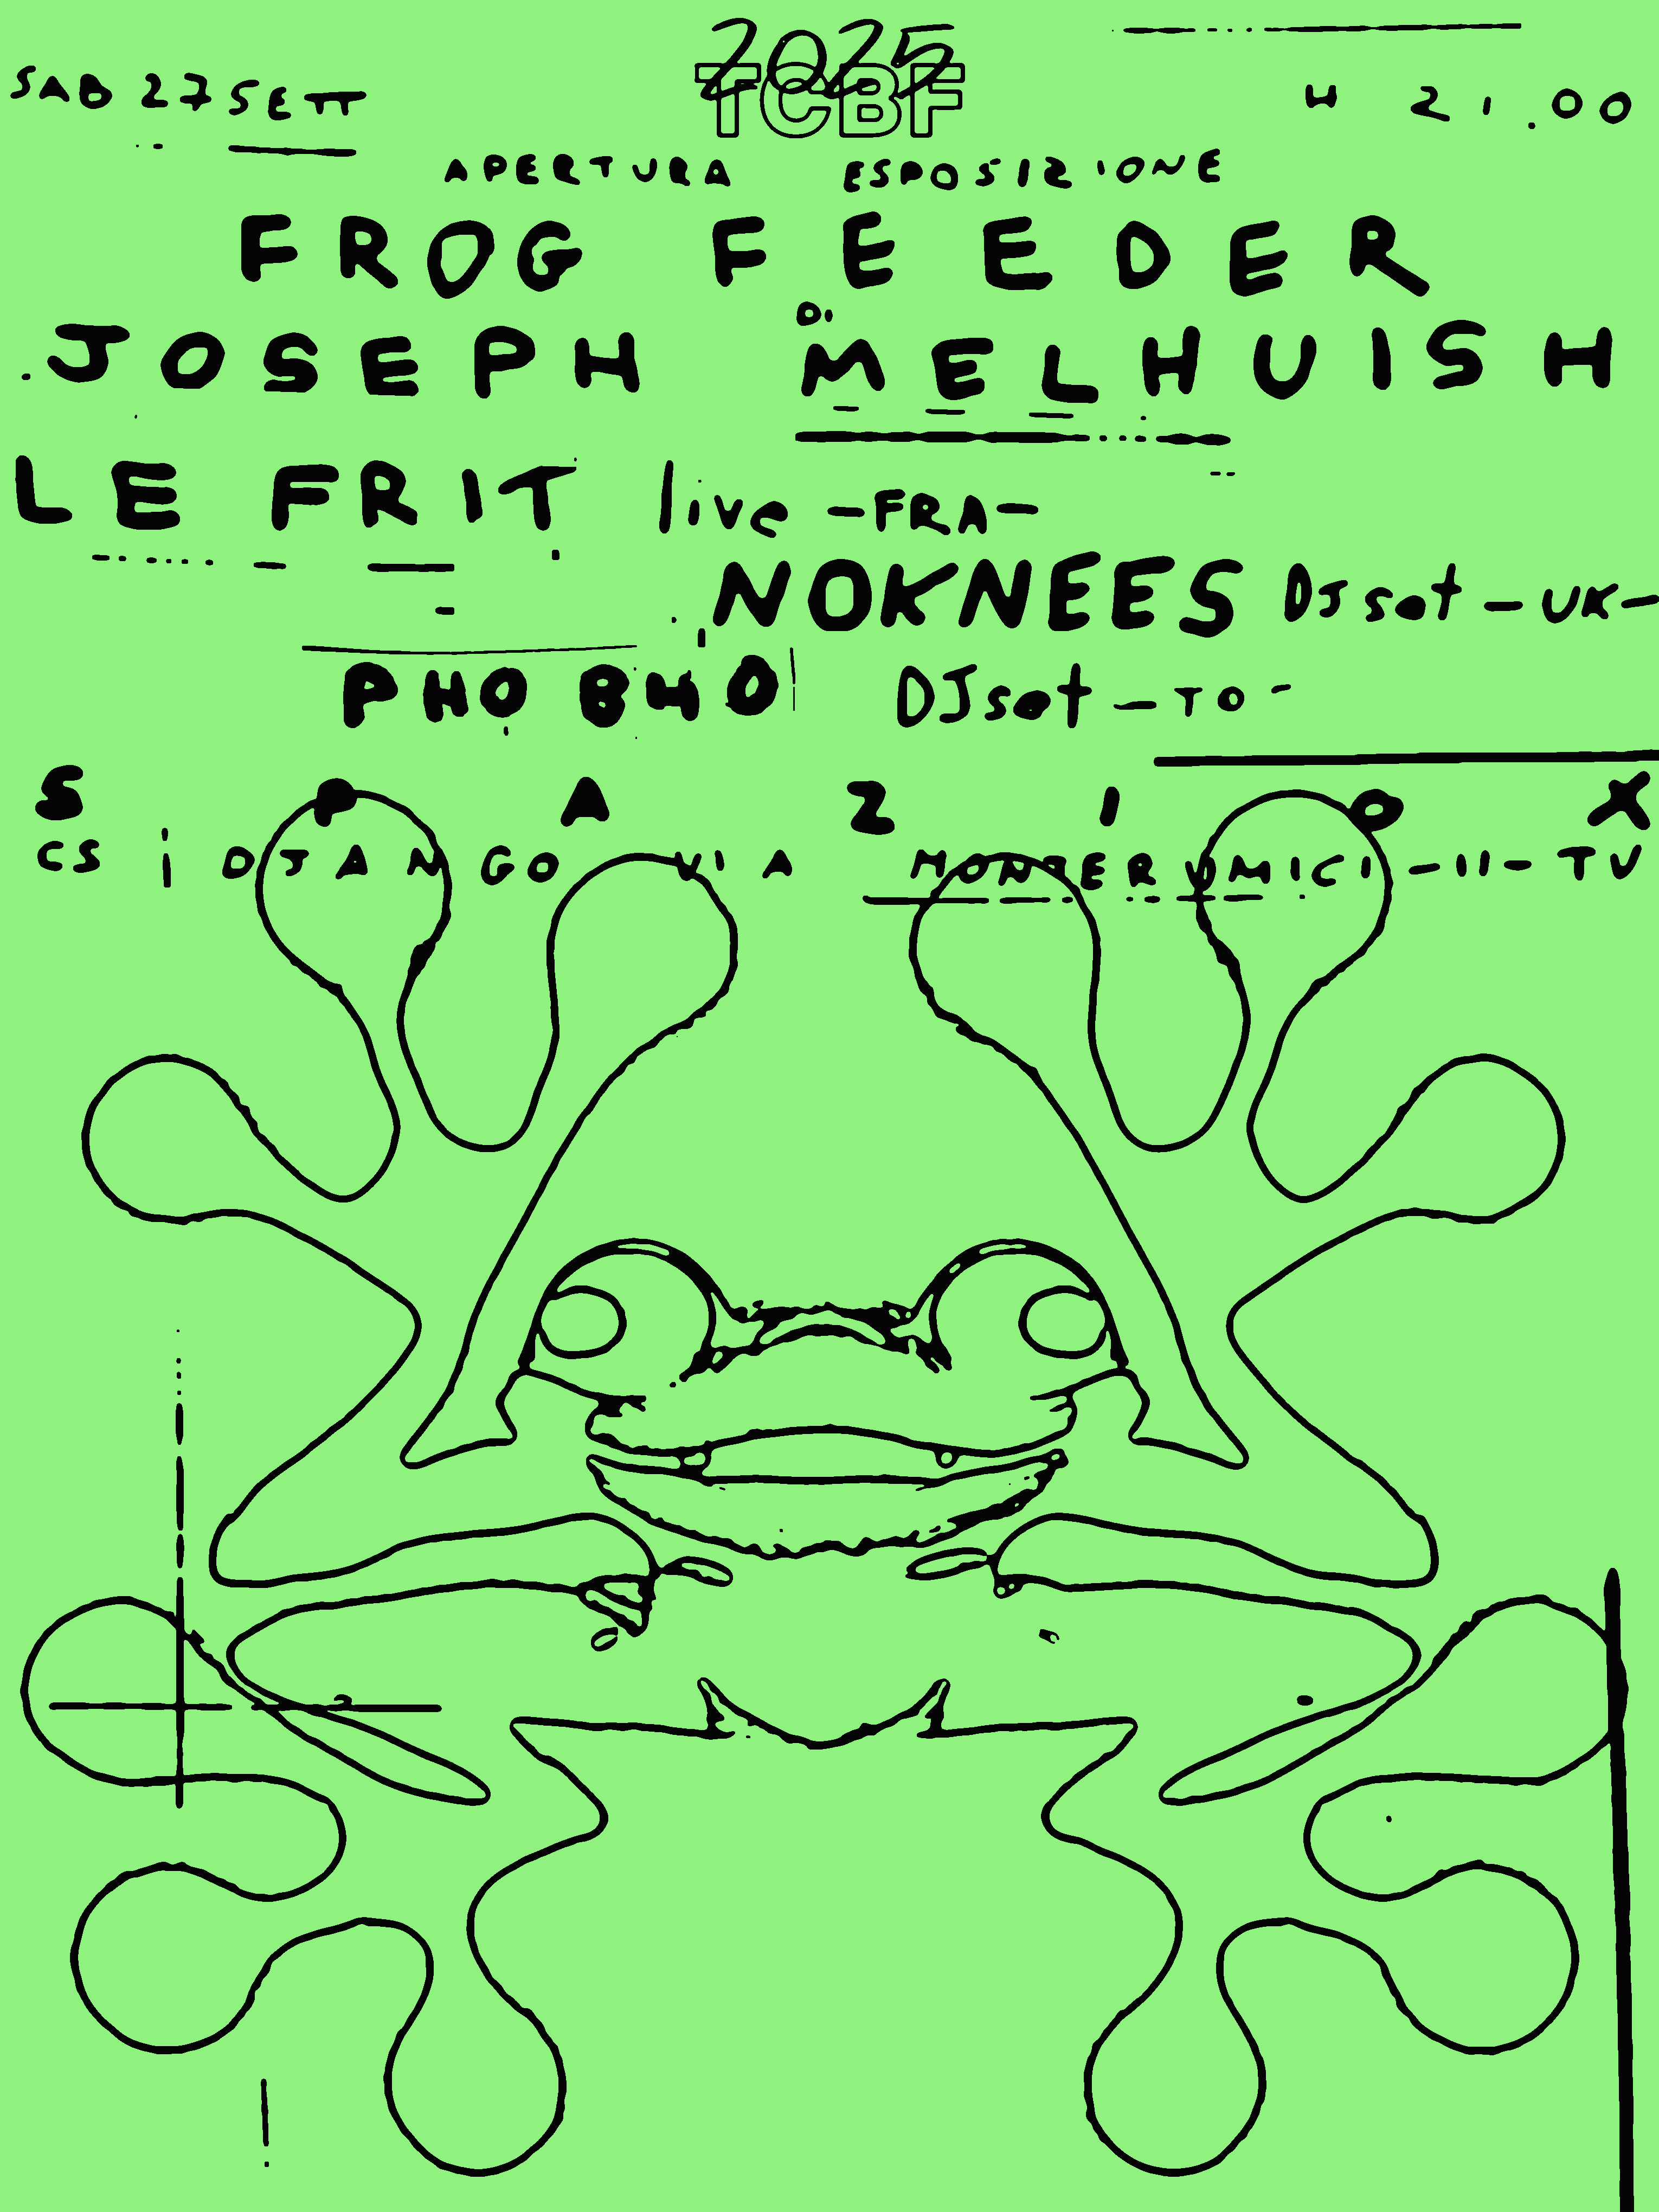 2025
TCBF
SAB 27 SETT
H 21.00
APERTURA ESPOSIZIONE
FROG FEEDER
DI
JOSEPH MELHUISH
LE FRIT live -FRA-
NOKNEES DJset -UK-
PHO BHO DJset -TO-
SPAZIO X
CS DJANGO VIA MONTERUMICI -11- TV